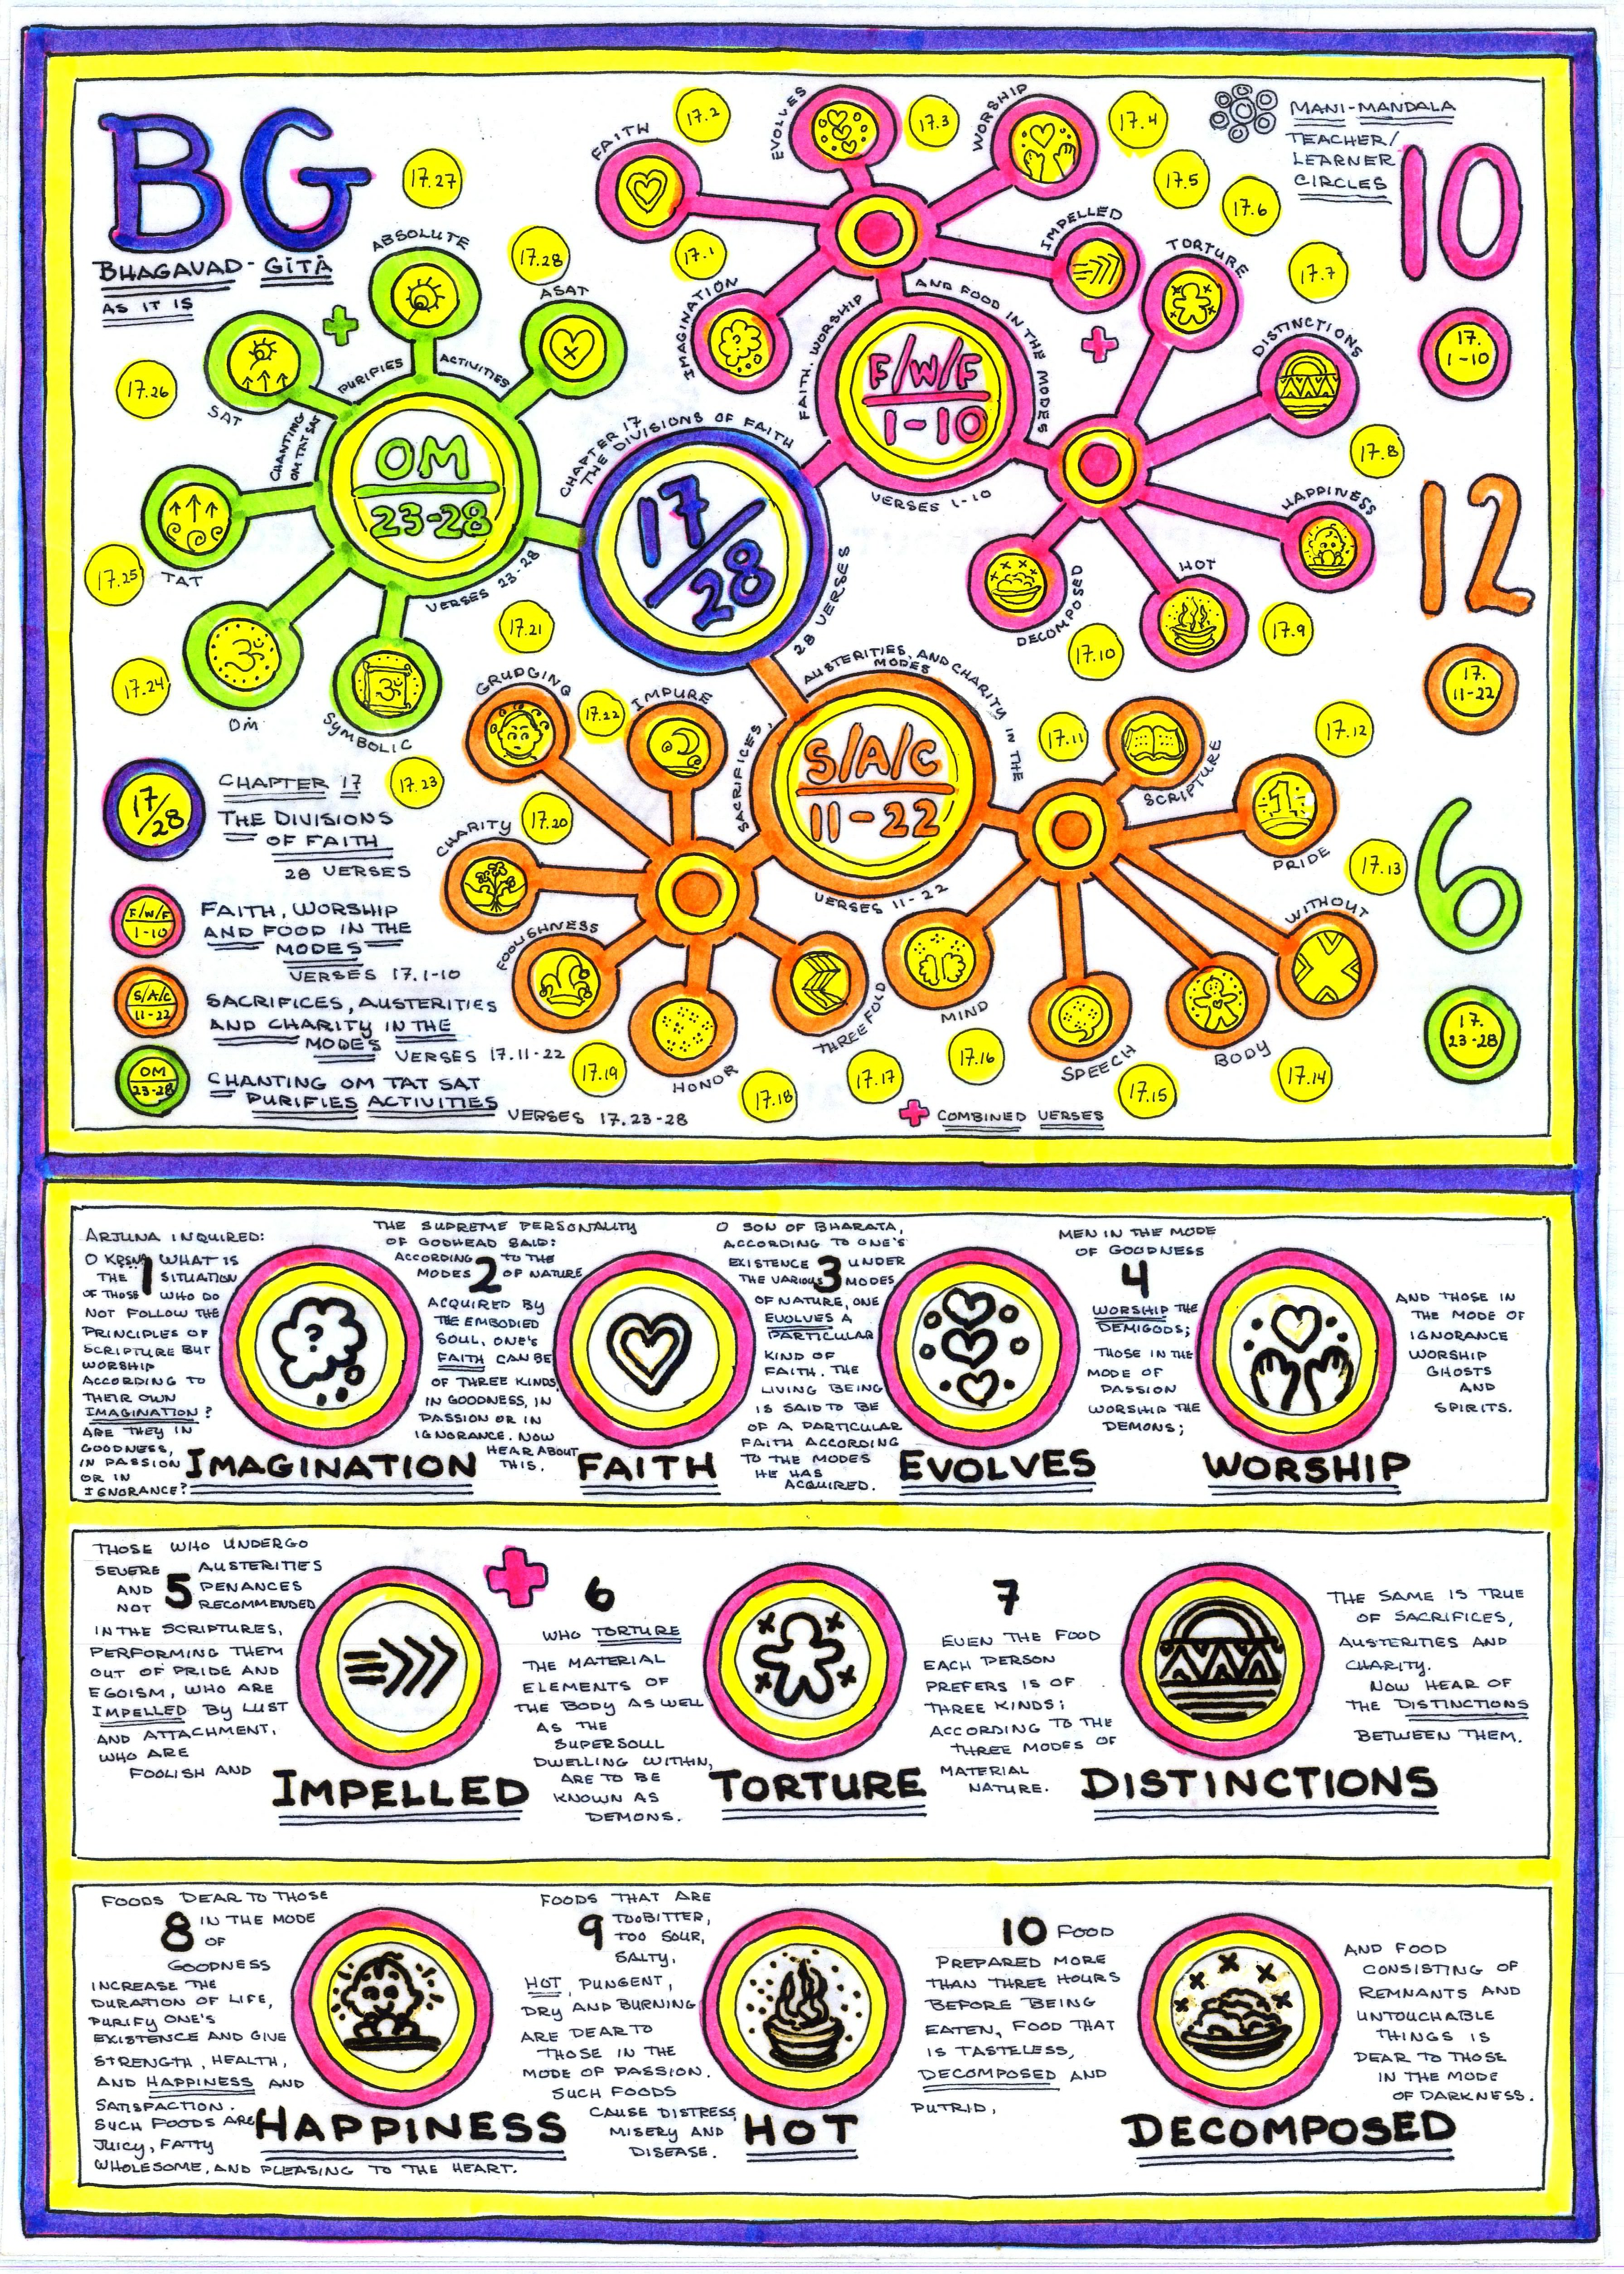 BG
BHAGAVAD-GĪTĀ
AS IT IS
MANI-MANDALA
TEACHER/
LEARNER
CIRCLES
10
17.
1-10
12
17.
11-22
6
17.
23-28
17.27
ABSOLUTE
17.28
ASAT
17.26
SAT
PURIFIES
ACTIVITIES
CHANTING
OM TAT SAT
OM
23-28
VERSES 23-28
17.25
TAT
17.24
OM
ॐ
SYMBOLIC
ॐ
17.23
FAITH
17.2
EVOLVES
17.3
WORSHIP
17.4
17.5
17.6
IMPELLED
17.1
IMAGINATION
?
FAITH, WORSHIP
AND FOOD IN THE MODES
F/W/F
1-10
VERSES 1-10
TORTURE
17.7
DISTINCTIONS
17.8
HAPPINESS
HOT
17.9
DECOMPOSED
17.10
CHAPTER 17
THE DIVISIONS OF FAITH
17/28
28 VERSES
AUSTERITIES, AND CHARITY IN THE
MODES
SACRIFICES,
S/A/C
11-22
VERSES 11-22
17.21
GRUDGING
17.22
IMPURE
17.20
CHARITY
FOOLISHNESS
17.19
HONOR
17.18
THREEFOLD
17.17
17.11
SCRIPTURE
17.12
1
PRIDE
17.13
WITHOUT
17.14
BODY
17.15
SPEECH
17.16
MIND
COMBINED VERSES
17/28
CHAPTER 17
THE DIVISIONS
OF FAITH
28 VERSES
F/W/F
1-10
FAITH, WORSHIP
AND FOOD IN THE
MODES
VERSES 17.1-10
S/A/C
11-22
SACRIFICES, AUSTERITIES
AND CHARITY IN THE
MODES
VERSES 17.11-22
OM
23-28
CHANTING OM TAT SAT
PURIFIES ACTIVITIES
VERSES 17.23-28
1
ARJUNA INQUIRED:
O KṚṢṆA WHAT IS
THE SITUATION
OF THOSE WHO DO
NOT FOLLOW THE
PRINCIPLES OF
SCRIPTURE BUT
WORSHIP
ACCORDING TO
THEIR OWN
IMAGINATION?
ARE THEY IN
GOODNESS,
IN PASSION
OR IN
IGNORANCE?
?
IMAGINATION
2
THE SUPREME PERSONALITY
OF GODHEAD SAID:
ACCORDING TO THE
MODES OF NATURE
ACQUIRED BY
THE EMBODIED
SOUL, ONE'S
FAITH CAN BE
OF THREE KINDS,
IN GOODNESS, IN
PASSION OR IN
IGNORANCE. NOW
HEAR ABOUT
THIS.
FAITH
3
O SON OF BHARATA,
ACCORDING TO ONE'S
EXISTENCE UNDER
THE VARIOUS MODES
OF NATURE, ONE
EVOLVES A
PARTICULAR
KIND OF
FAITH. THE
LIVING BEING
IS SAID TO BE
OF A PARTICULAR
FAITH ACCORDING
TO THE MODES
HE HAS
ACQUIRED.
EVOLVES
4
MEN IN THE MODE
OF GOODNESS
WORSHIP THE
DEMIGODS;
THOSE IN THE
MODE OF
PASSION
WORSHIP THE
DEMONS;
WORSHIP
AND THOSE IN
THE MODE OF
IGNORANCE
WORSHIP
GHOSTS
AND
SPIRITS.
5
THOSE WHO UNDERGO
SEVERE AUSTERITIES
AND PENANCES
NOT RECOMMENDED
IN THE SCRIPTURES,
PERFORMING THEM
OUT OF PRIDE AND
EGOISM, WHO ARE
IMPELLED BY LUST
AND ATTACHMENT,
WHO ARE
FOOLISH AND
IMPELLED
6
WHO TORTURE
THE MATERIAL
ELEMENTS OF
THE BODY AS WELL
AS THE
SUPERSOUL
DWELLING WITHIN,
ARE TO BE
KNOWN AS
DEMONS.
TORTURE
7
EVEN THE FOOD
EACH PERSON
PREFERS IS OF
THREE KINDS;
ACCORDING TO THE
THREE MODES OF
MATERIAL
NATURE.
DISTINCTIONS
THE SAME IS TRUE
OF SACRIFICES,
AUSTERITIES AND
CHARITY.
NOW HEAR OF
THE DISTINCTIONS
BETWEEN THEM.
8
FOODS DEAR TO THOSE
IN THE MODE
OF
GOODNESS
INCREASE THE
DURATION OF LIFE,
PURIFY ONE'S
EXISTENCE AND GIVE
STRENGTH, HEALTH,
AND HAPPINESS AND
SATISFACTION.
SUCH FOODS ARE
JUICY, FATTY
WHOLESOME, AND PLEASING TO THE HEART.
HAPPINESS
9
FOODS THAT ARE
TOO BITTER,
TOO SOUR,
SALTY,
HOT, PUNGENT,
DRY AND BURNING
ARE DEAR TO
THOSE IN THE
MODE OF PASSION.
SUCH FOODS
CAUSE DISTRESS,
MISERY AND
DISEASE.
HOT
10
FOOD
PREPARED MORE
THAN THREE HOURS
BEFORE BEING
EATEN, FOOD THAT
IS TASTELESS,
DECOMPOSED AND
PUTRID,
DECOMPOSED
AND FOOD
CONSISTING OF
REMNANTS AND
UNTOUCHABLE
THINGS IS
DEAR TO THOSE
IN THE MODE
OF DARKNESS.